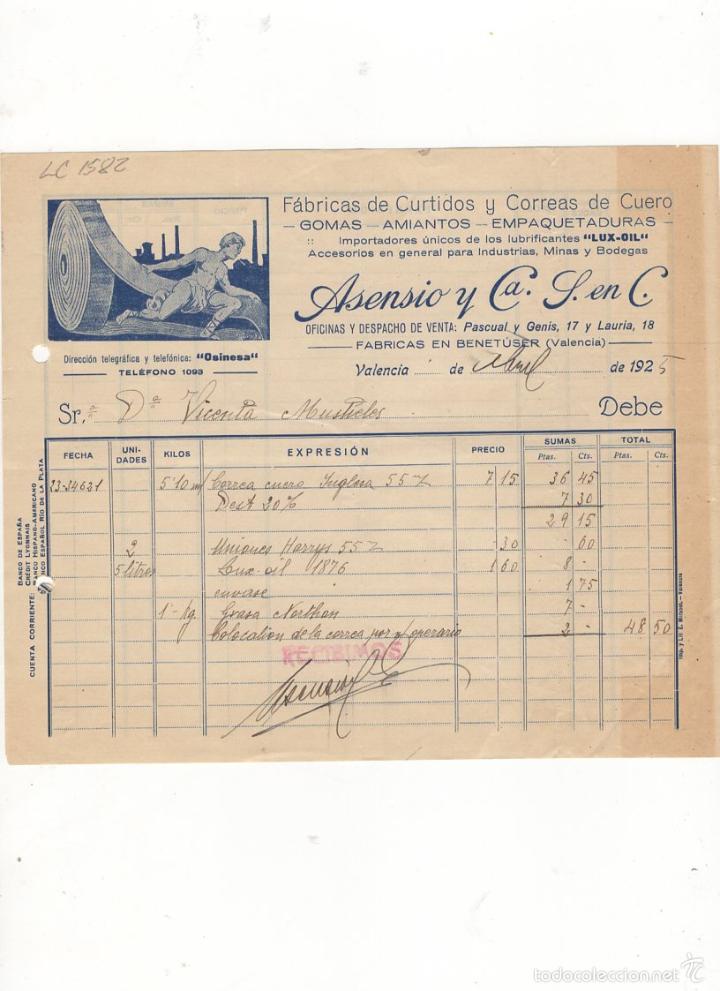 LC 1582
Fábricas de Curtidos y Correas de Cuero
— GOMAS — AMIANTOS — EMPAQUETADURAS —
:: Importadores únicos de los lubrificantes "LUX-OIL"
Accesorios en general para Industrias, Minas y Bodegas
Asensio y Ca. S. en C.
OFICINAS Y DESPACHO DE VENTA: Pascual y Genis, 17 y Lauria, 18
— FABRICAS EN BENETÚSER (Valencia) —
Dirección telegráfica y telefónica: "Osinesa"
— TELÉFONO 1093 —
Valencia de Abril de 1925
Sr.ª Dª Vicenta Mustieles Debe
FECHA UNIDADES KILOS EXPRESIÓN PRECIO SUMAS TOTAL
Ptas. Cts. Ptas. Cts.
5'10 m/ Correa cuero Inglesa 55 7 15 36 45
Dest 20% 7 30
29 15
2 Uniones Harrys 55 - 30 - 60
5 litros Lux-oil 1876 1 60 8 -
envase 1 75
1'- Kg. Grasa Northon 7 -
Colocation de la correa por n/ operario 2 - 48 50
RECIBIMOS
CUENTA CORRIENTE:
BANCO DE ESPAÑA
CRÉDIT LYONNAIS
BANCO HISPANO-AMERICANO
BANCO ESPAÑOL RÍO DE LA PLATA
todocoleccion.net